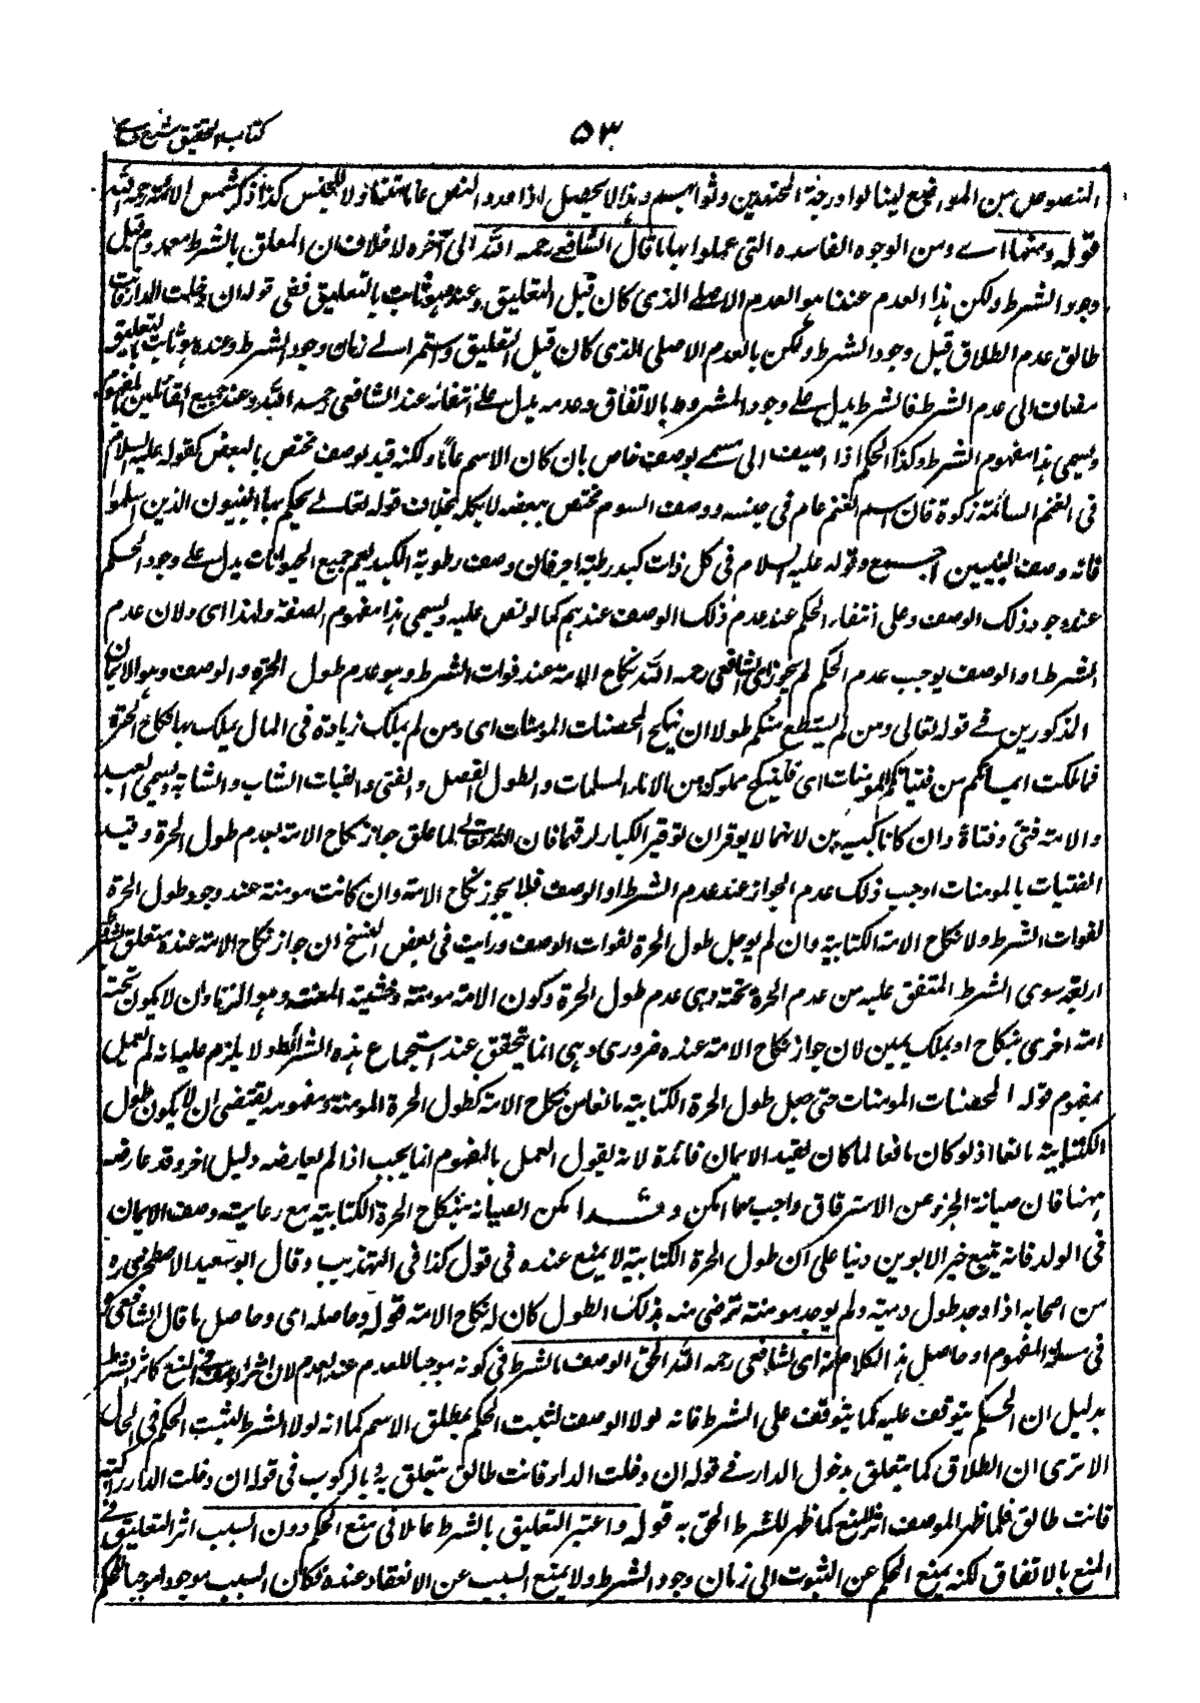 ۵۳ كتاب التحقيق شرح
النصوص من المواضع لينالوا درجة المجتهدين وثوابهم وهذا لا يحصل اذا ورد النص عاما متناولا للجنس كذا ذكر شمس الائمة رحمه الله
قوله ومنها اے ومن الوجوه الفاسدة التى عملوا بها ما قال الشافعى رحمه الله الى آخره لا خلاف ان المعلق بالشرط معدوم قبل
وجود الشرط ولكن هذا العدم عندنا هو العدم الاصلى الذى كان قبل التعليق وعنده هو ثابت بالتعليق ففى قوله ان دخلت الدار فانت
طالق عدم الطلاق قبل وجود الشرط ولكن بالعدم الاصلى الذى كان قبل التعليق واستمر الے زمان وجود الشرط وعنده هو ثابت بالتعليق
مضاف الى عدم الشرط فالشرط يدل على وجود المشروط بالاتفاق وعدمه يدل على انتفائه عند الشافعى رحمه الله وعند جميع القائلين بالمفهوم
ويسمى هذا مفهوم الشرط وكذا الحكم اذا اضيف الى مسمے بوصف خاص بان كان الاسم عاما ولكنه قيد بوصف مختص بالبعض كقوله عليه السلام
فى الغنم السائمة زكوة فان اسم الغنم عام فى جنسه ووصف السوم مختص ببعضه لا بكله بخلاف قوله تعالے يحكم بها النبيون الذين اسلموا
فانه وصف النبيين اجمع وقوله عليه السلام فى كل ذات كبد رطبة اجر فان وصف رطوبة الكبد يعم جميع الحيوانات يدل على وجود الحكم
عند وجود ذلك الوصف وعلى انتفاء الحكم عند عدم ذلك الوصف عندهم كما لو نص عليه ويسمى هذا مفهوم الصفة ولهذا اى ولان عدم
الشرط او الوصف يوجب عدم الحكم لم يجوز اى الشافعى رحمه الله نكاح الامة عند فوات الشرط وهو عدم طول الحرة والوصف وهو الايمان
المذكورين فے قوله تعالى ومن لم يستطع منكم طولا ان ينكح المحصنات المومنات اى ومن لم يملك زيادة فى المال يملك بها نكاح الحرة
فمما ملكت ايمانكم من فتياتكم المومنات اى فلينكح مملوكة من الاماء المسلمات والطول الفضل والفتى والفتات الشاب والشابة ويسمى العبد
والامة فتى وفتاة وان كانا كبيرين لانهما لا يوقران توقير الكبار لرقهما فان الله تعالى لما علق جواز نكاح الامة بعدم طول الحرة وقيد
الفتيات بالمومنات اوجب ذلك عدم الجواز عند عدم الشرط او الوصف فلا يجوز نكاح الامة وان كانت مومنة عند وجود طول الحرة
لفوات الشرط ولا نكاح الامة الكتابية وان لم يوجد طول الحرة لفوات الوصف ورايت فى بعض النسخ ان جواز نكاح الامة عنده متعلق بشرائط
اربعة سوى الشرط المتفق عليه من عدم الحرة تحته وهى عدم طول الحرة وكون الامة مومنة وخشية العنت وهو الزنا وان لا يكون تحته
امة اخرى بنكاح او بملك يمين لان جواز نكاح الامة عنده ضرورى وهى انما تحقق عند استجماع هذه الشرائط ولا يلزم عليه انه لم يعمل
بمفهوم قوله المحصنات المومنات حتى جعل طول الحرة الكتابية مانعا من نكاح الامة كطول الحرة المومنة ومفهومه يقتضى ان لا يكون طول
الكتابية مانعا اذ لو كان مانعا لما كان لقيد الايمان فائدة لانه يقول العمل بالمفهوم انما يجب اذا لم يعارضه دليل اخر وقد عارضه
ههنا فان صيانة الجزء عن الاسترقاق واجب مهما امكن وقد امكن الصيانة بنكاح الحرة الكتابية مع رعاية وصف الايمان
فى الولد فانه يتبع خير الابوين دينا على ان طول الحرة الكتابية لا يمنع عنده فى قول كذا فى التهذيب وقال ابو سعيد الاصطخرى رہ
من اصحابه اذا وجد طول ذمية ولم يوجد مومنة ترضى منه بذلك الطول كان له نكاح الامة قوله وحاصله اى وحاصل ما قال الشافعى
فى مسئلة المفهوم او حاصل هذا الكلام انه اى الشافعى رحمه الله الحق الوصف بالشرط فى كونه موجبا للعدم عند العدم لان اثر الوصف فى المنع كاثر الشرط
بدليل ان الحكم يتوقف عليه كما يتوقف على الشرط فانه لولا الوصف لثبت الحكم بمطلق الاسم كما انه لولا الشرط لثبت الحكم فى الحال
الا ترى ان الطلاق كما يتعلق بدخول الدار فے قوله ان دخلت الدار فانت طالق يتعلق به بالركوب فى قوله ان دخلت الدار راكبة
فانت طالق فلما ظهر للوصف اثر المنع كما ظهر للشرط الحق به قوله واعتبر التعليق بالشرط عاملا فى منع الحكم دون السبب اثر التعليق فے
المنع بالاتفاق لكنه يمنع الحكم عن الثبوت الى زمان وجود الشرط ولا يمنع السبب عن الانعقاد عنده فكان السبب موجودا موجبا للحكم